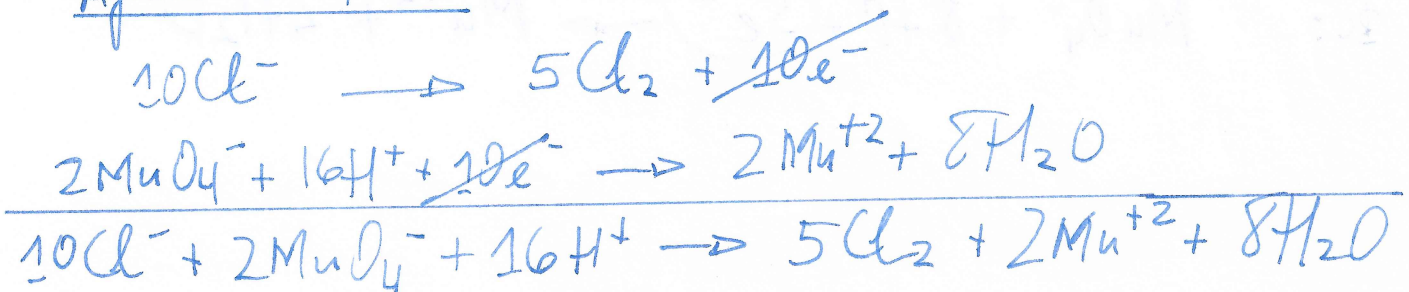 10Cl⁻ → 5Cl₂ + 10e⁻
2MnO₄⁻ + 16H⁺ + 10e⁻ → 2Mn⁺² + 8H₂O
10Cl⁻ + 2MnO₄⁻ + 16H⁺ → 5Cl₂ + 2Mn⁺² + 8H₂O